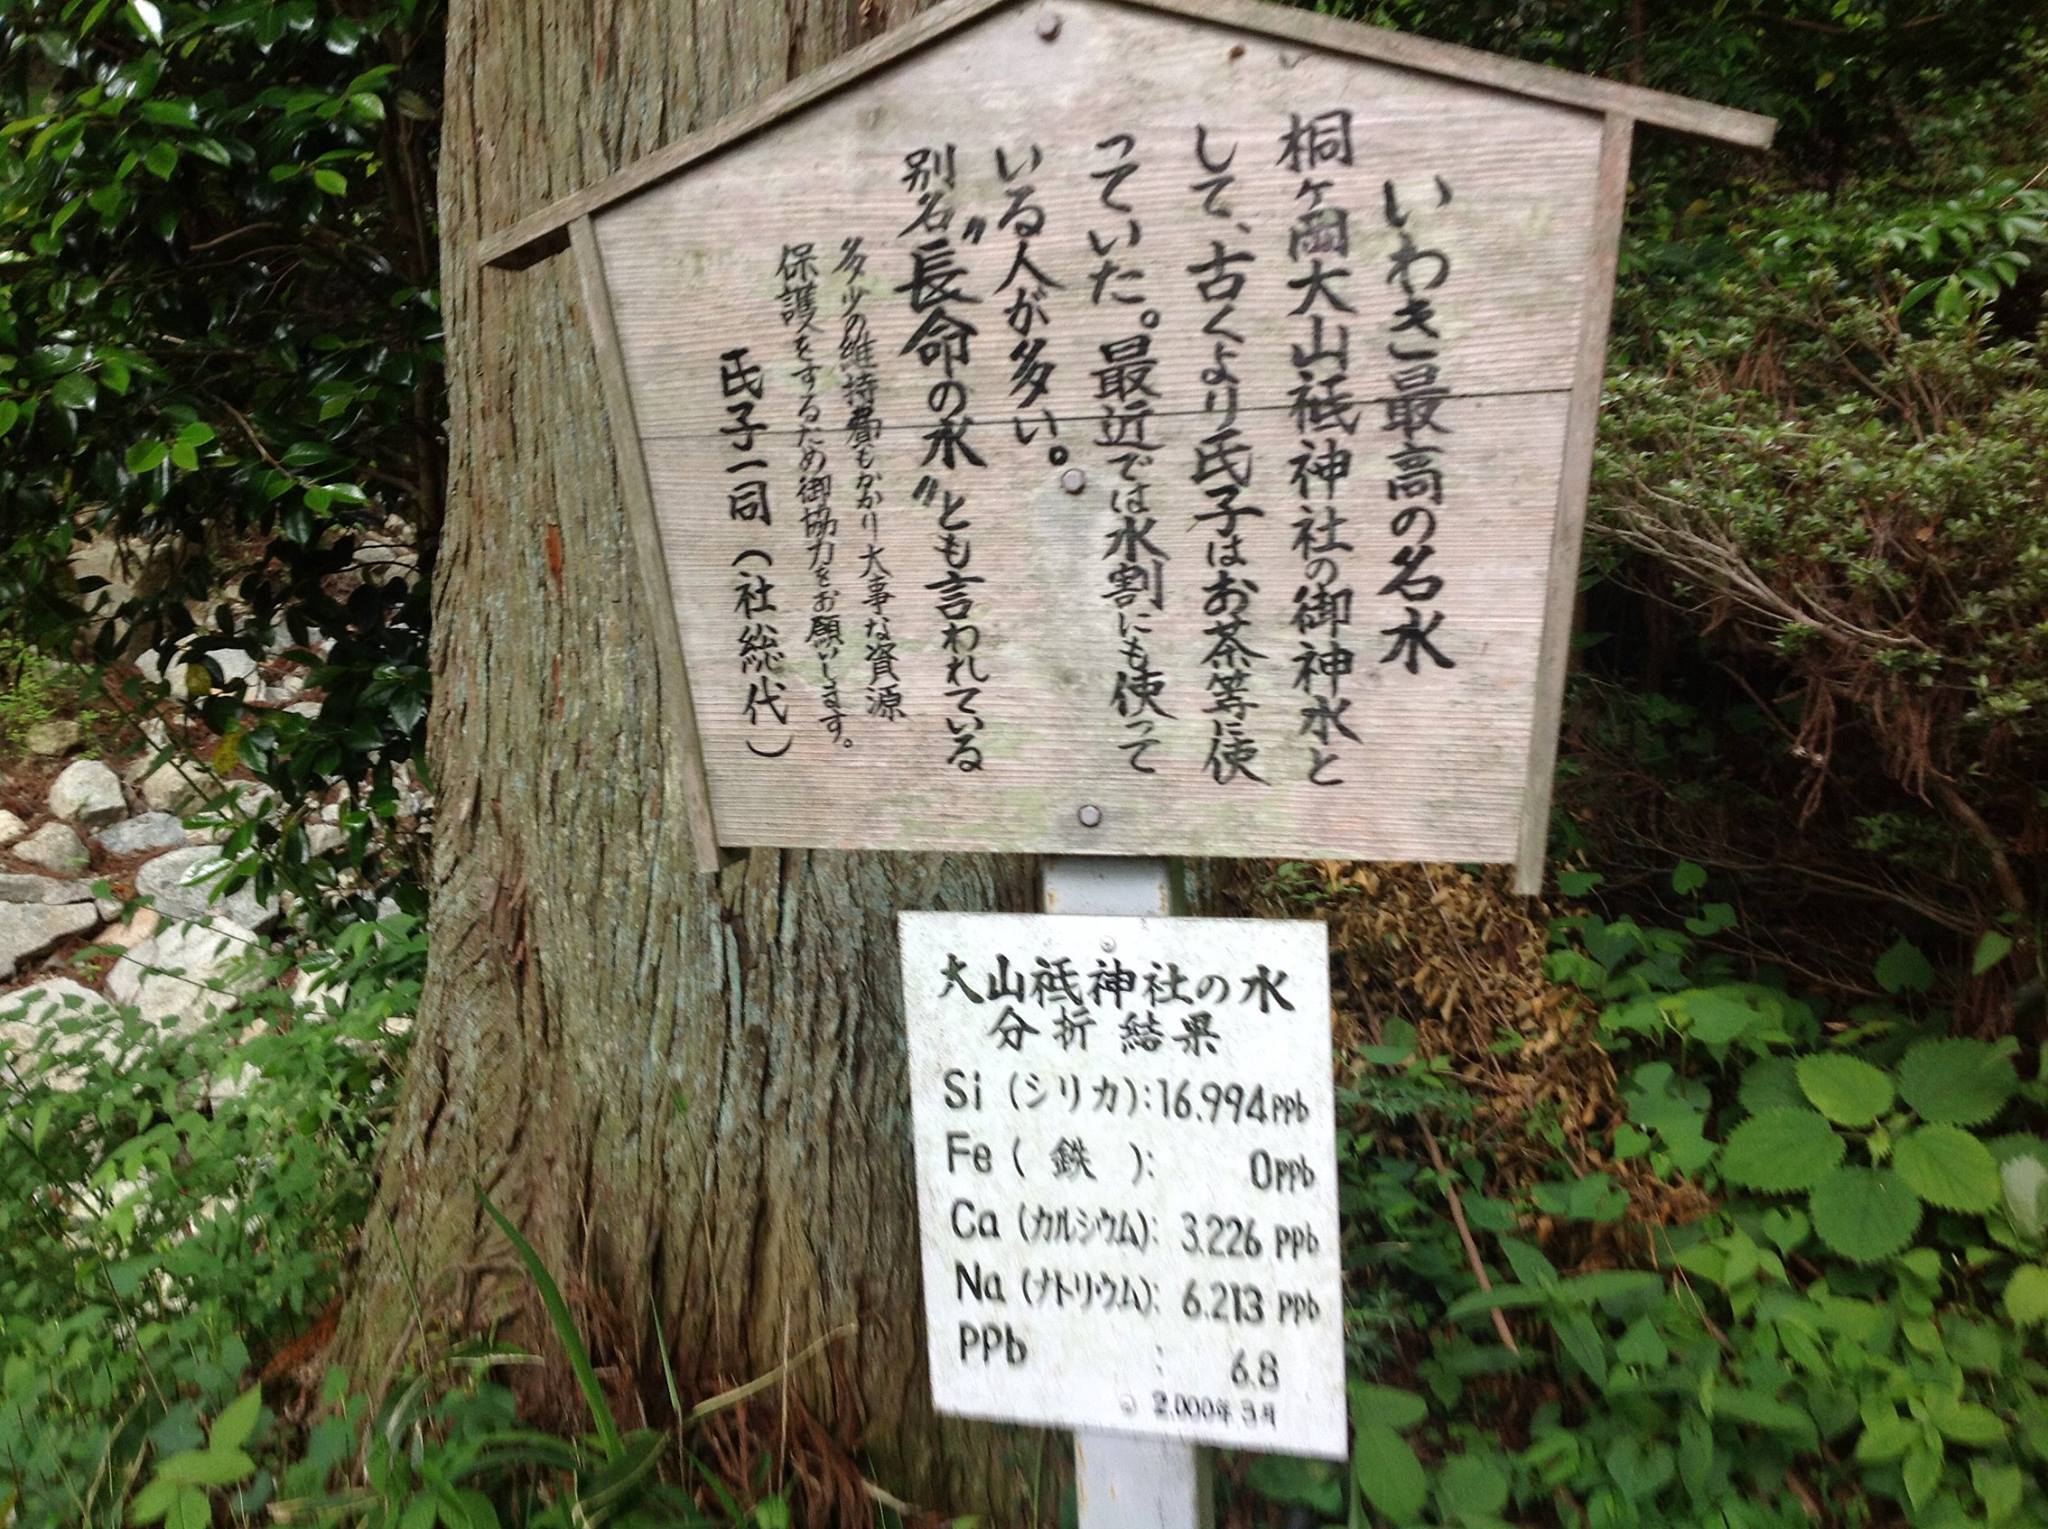 いわき最高の名水
桐ヶ岡大山祗神社の御神水と
して、古くより氏子はお茶等に使
っていた。最近では水割にも使って
いる人が多い。
別名〝長命の水〟とも言われている
多少の維持費もかかり大事な資源
保護をするため御協力をお願いします。
氏子一同(社総代)
大山祗神社の水
分折結果
Si(シリカ):16.994ppb
Fe(鉄):0ppb
Ca(カルシウム):3.226ppb
Na(ナトリウム):6.213ppb
PPb:6.8
2,000年3月